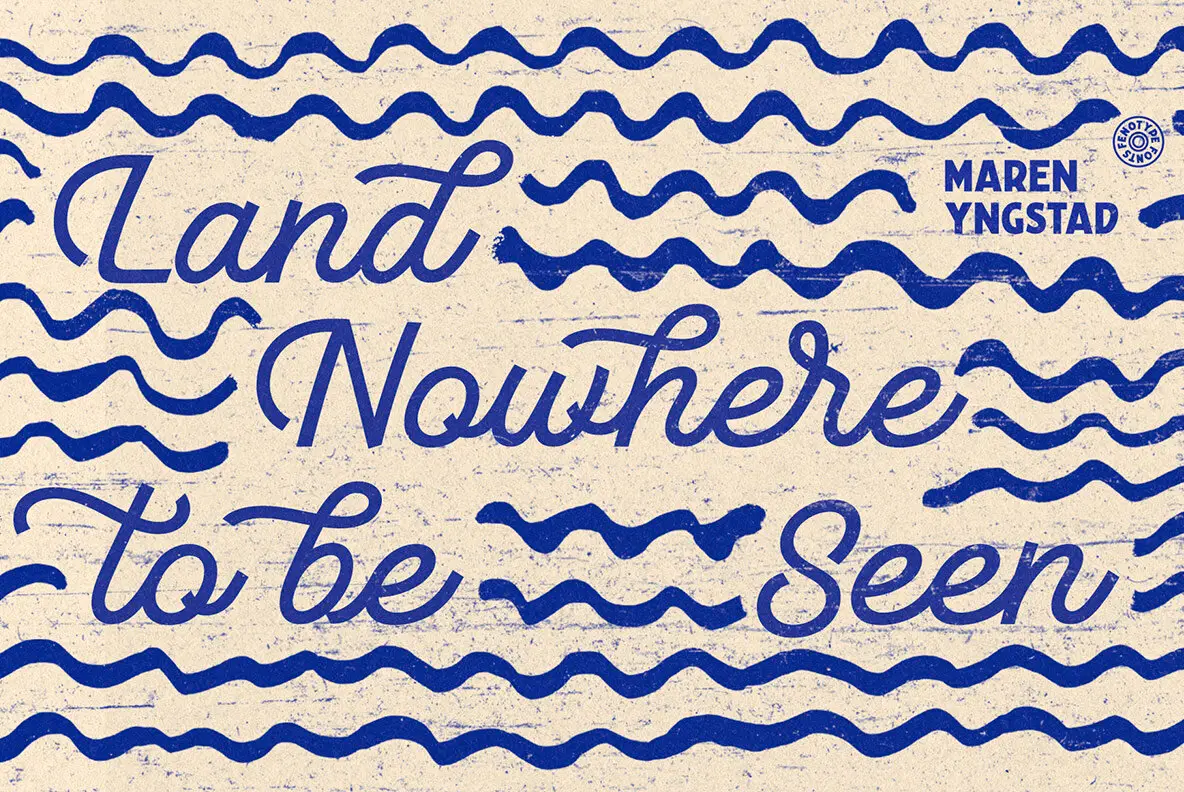 Land
Nowhere
To be Seen
MAREN
YNGSTAD
FENOTYPE FONTS